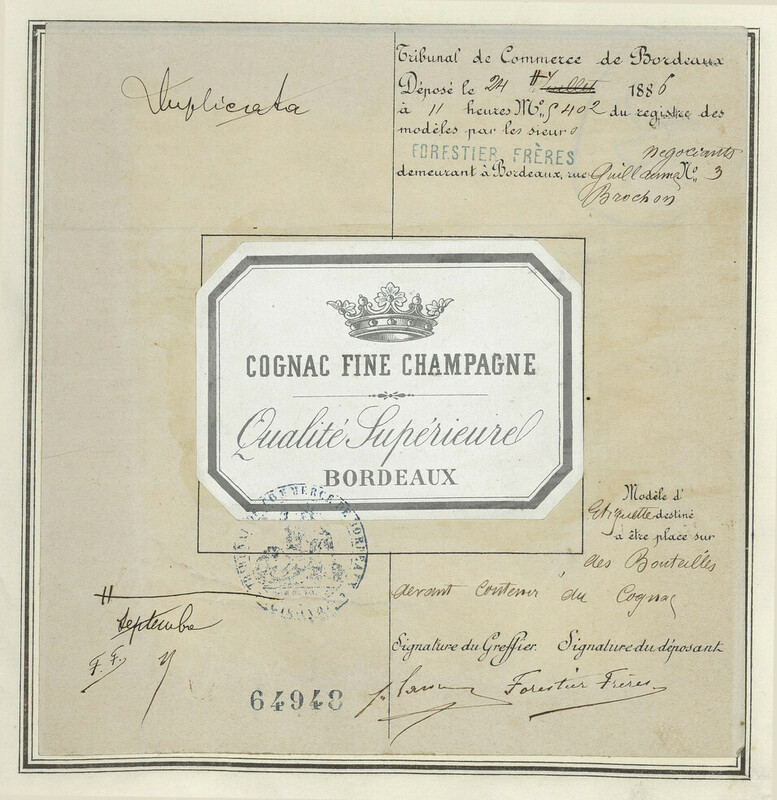 Duplicata
Tribunal de Commerce de Bordeaux
Déposé le 24 # Juillet 1886
à 11 heures No. 5402 du registre des
modèles par les sieurs
FORESTIER FRÈRES
négociants
demeurant à Bordeaux, rue Guillaume No. 3
Brochon
COGNAC FINE CHAMPAGNE
Qualité Supérieure
BORDEAUX
TRIBUNAL DE COMMERCE DE BORDEAUX
Modèle d'
Etiquette destiné
à être placé sur
des Bouteilles
devant contenir du Cognac
#
Septembre
F. F.
Signature du Greffier. Signature du déposant
Forestier Frères
64948